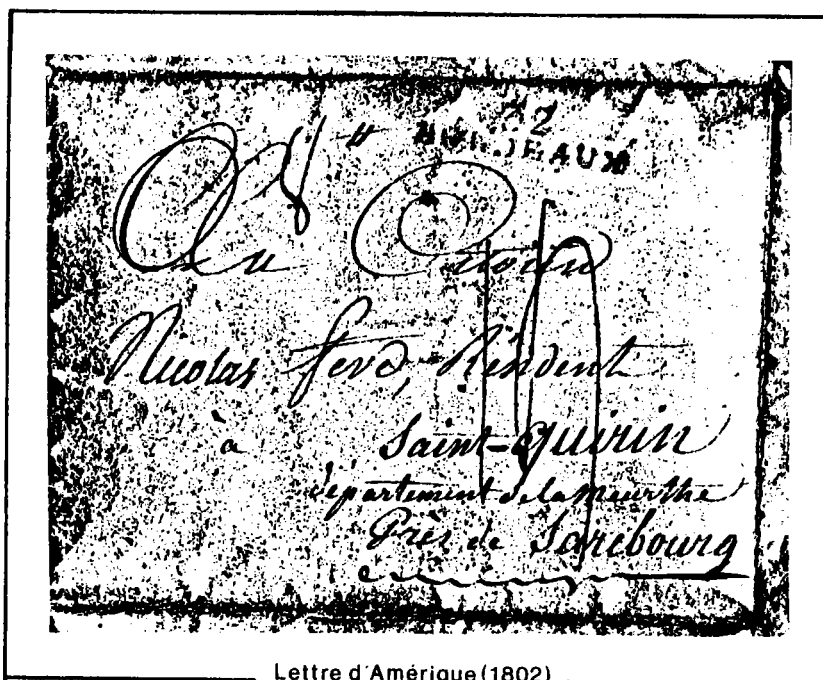 2
Au Citoien
Nicolas ferd, Résident
à Saint-quirin
département de la meurthe
Près de Sarebourg
Lettre d'Amérique (1802)